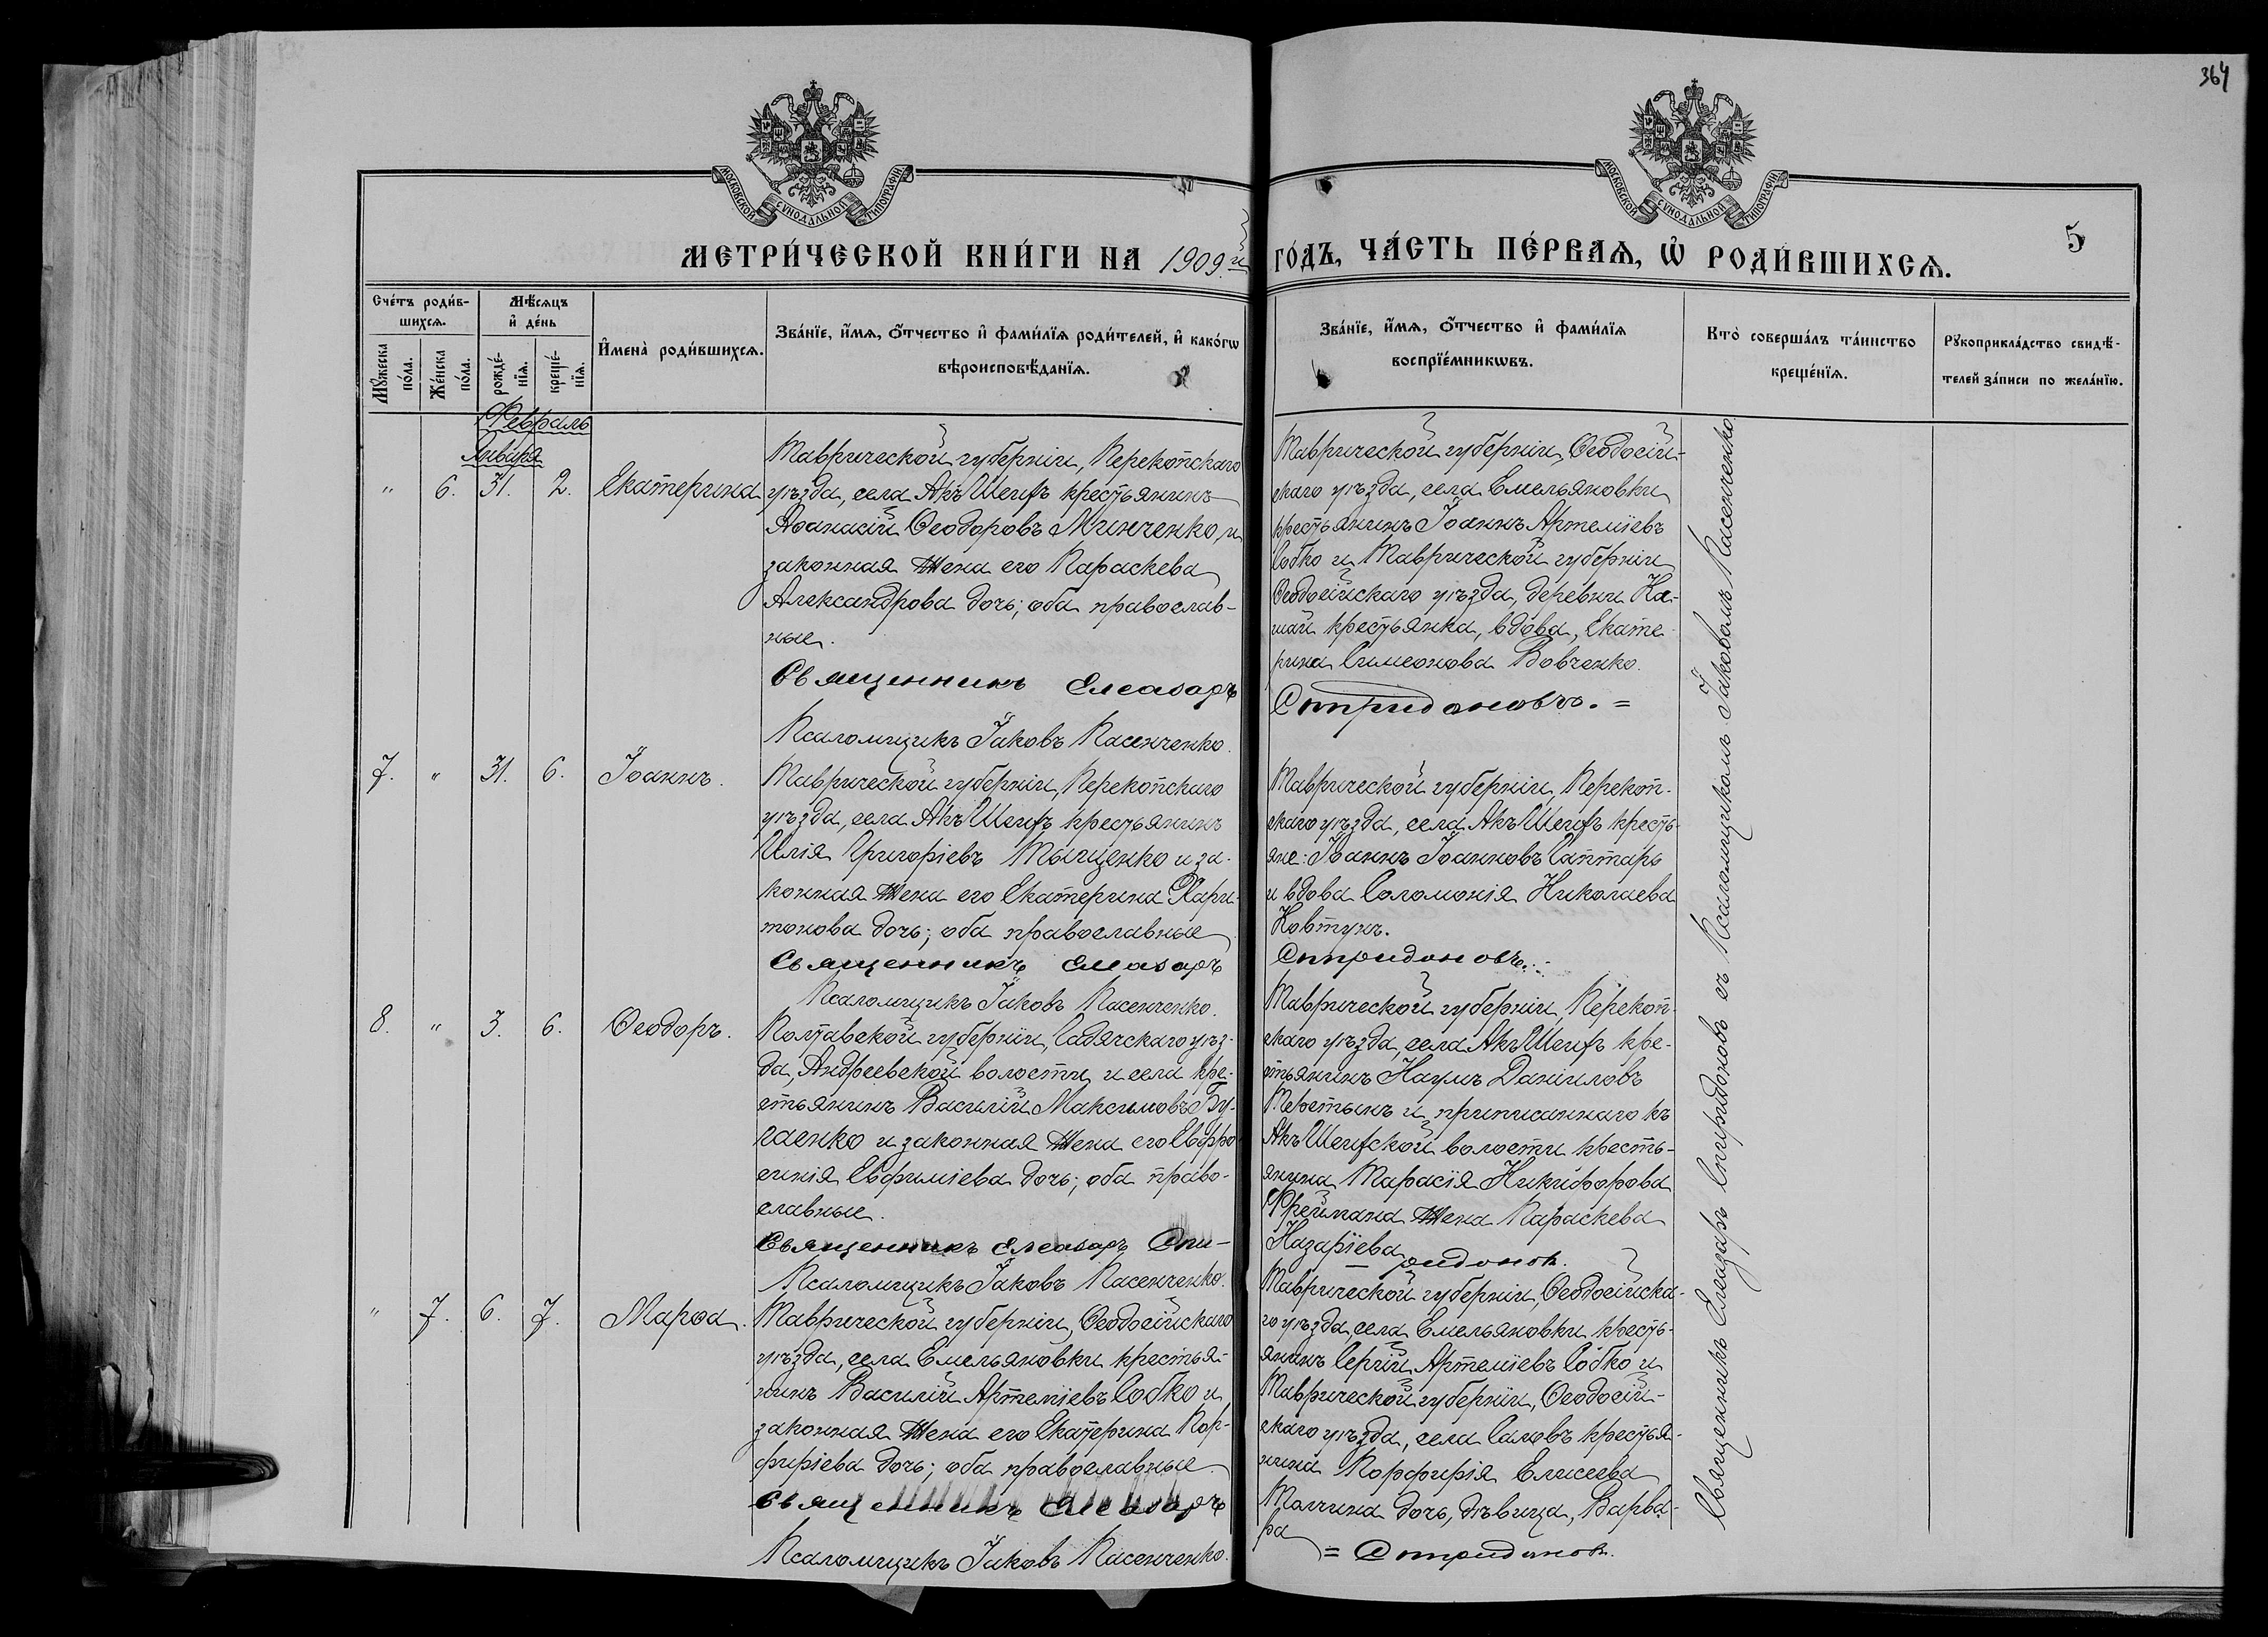 364
МОСКОВСКОЙ СѴНОДАЛЬНОЙ ТИПОГРАФІИ
МОСКОВСКОЙ СѴНОДАЛЬНОЙ ТИПОГРАФІИ
МЕТРИ́ЧЕСКОЙ КНИ́ГИ НА 1909й ГО́ДЪ, ЧА́СТЬ ПЕ́РВАѦ, Ѽ РОДИ́ВШИХСѦ.
5
Сче́тъ роди́в-
шихсѧ.
Мꙋ́жеска
по́ла.
Же́нска
по́ла.
Мѣ́сѧцъ
и҆ де́нь
рожде́-
нїѧ.
креще́-
нїѧ.
И҆мена̀ роди́вшихсѧ.
Зва́нїе, и҆́мѧ, ѻ҆́тчество и҆ фами́лїѧ роди́телей, и҆ како́гѡ
вѣроисповѣ́данїѧ.
Зва́нїе, и҆́мѧ, ѻ҆́тчество и҆ фами́лїѧ
воспрїе́мникѡвъ.
Кто̀ соверша́лъ та́инство
креще́нїѧ.
Рꙋкоприкла́дство свидѣ́-
телей за́писи по жела́нїю.
Февраль
Января
" 6. 31. 2. Екатерина
Таврической губерніи, Перекопскаго
уѣзда, села Акъ Шеихъ крестьянинъ
Аѳанасій Ѳеодоровъ Минченко, и
законная жена его Параскева
Александрова дочь; оба православ-
ные.
Священникъ Елеазаръ
Псаломщикъ Іаковъ Пасенченко.
Таврической губерніи, Ѳеодосій-
скаго уѣзда, села Емельяновки
крестьянинъ Іоаннъ Артеміевъ
Собко и Таврической губерніи
Ѳеодосійскаго уѣзда, деревни На-
крестьянка, вдова, Екате-
рина Симеонова Вовченко.
Спиридоновъ. =
7. " 31. 6. Іоаннъ.
Таврической губерніи, Перекопскаго
уѣзда, села Акъ Шеихъ крестьянинъ
Илія Григоріевъ Тыщенко и за-
конная жена его Екатерина Хари-
тонова дочь; оба православные
Священникъ Елеазаръ
Псаломщикъ Іаковъ Пасенченко.
Таврической губерніи, Перекоп-
скаго уѣзда, села Акъ Шеихъ кресть-
яне: Іоаннъ Іоанновъ Саптарь
и вдова Соломонія Николаева
Ковтунъ.
Спиридоновъ.
8. " 3. 6. Ѳеодоръ.
Полтавской губерніи, Гадячскаго уѣз-
да, Андреевской волости и села кре-
стьянинъ Василій Максимовъ Бу-
гаенко и законная жена его Евфро-
синія Евфиміева дочь; оба право-
славные.
Священникъ Елеазаръ Спи-
Псаломщикъ Іаковъ Пасенченко.
Таврической губерніи, Перекоп-
скаго уѣзда, села Акъ Шеихъ кре-
стьянинъ Наумъ Даніиловъ
и приписаннаго къ
Акъ Шеихской волости кресть-
янина Тарасія Никифорова
Фреймана жена Параскева
Назаріева
ридоновъ.
" 7. 6. 7. Марѳа.
Таврической губерніи, Ѳеодосійскаго
уѣзда, села Емельяновки крестья-
нинъ Василій Артеміевъ Собко и
законная жена его Екатерина Пор-
фиріева дочь; оба православные
Священникъ Елеазаръ
Псаломщикъ Іаковъ Пасенченко.
Таврической губерніи, Ѳеодосійска-
го уѣзда, села Емельяновки кресть-
янинъ Сергій Артеміевъ Собко и
Таврической губерніи, Ѳеодосій-
скаго уѣзда, села крестья-
нина Порфирія Елисеева
дочь, дѣвица, Варва-
ра
= Спиридоновъ.
Священникъ Елеазаръ Спиридоновъ съ Псаломщикомъ Іаковомъ Пасенченко